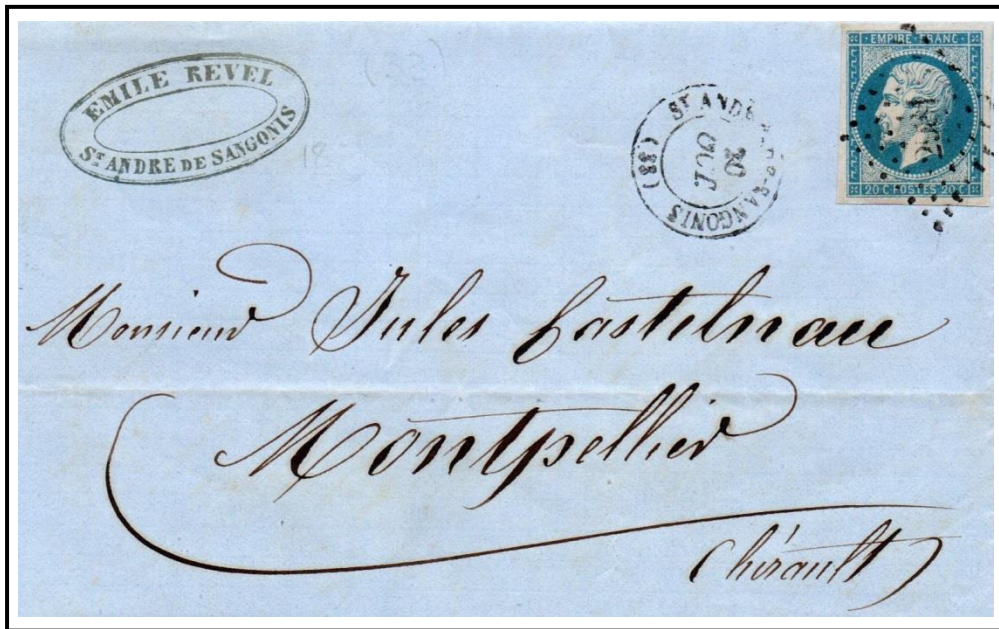 EMILE REVEL
ST ANDRE DE SANGONIS
(33)
18
ST ANDRÉ SANGONIS
20
OCT.
(33)
EMPIRE FRANC
20 C POSTES 20 C
Monsieur Jules Castelnau
Montpellier
(hérault)